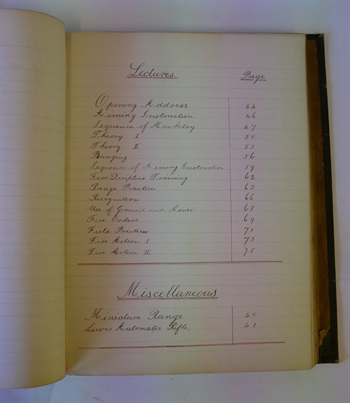 Lectures. Page.
Opening Address 42
Aiming Instruction 46
Sequence of Musketry 47
Theory I 50
Theory II 53
Ranging 56
Sequence of Aiming Instruction 59
Fire Discipline Training 62
Range Practices 63
Recognition 66
Use of Ground and Cover 68
Fire Orders 69
Field Practices 71
Fire Action I 73
Fire Action II 75
Miscellaneous
Miniature Range
Lewis Automatic Rifle.